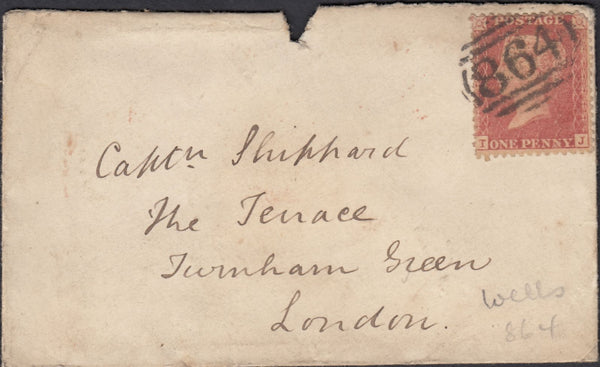 POSTAGE
864
I J
ONE PENNY
Captn Shippard
The Terrace
Turnham Green
London.
Wells
864